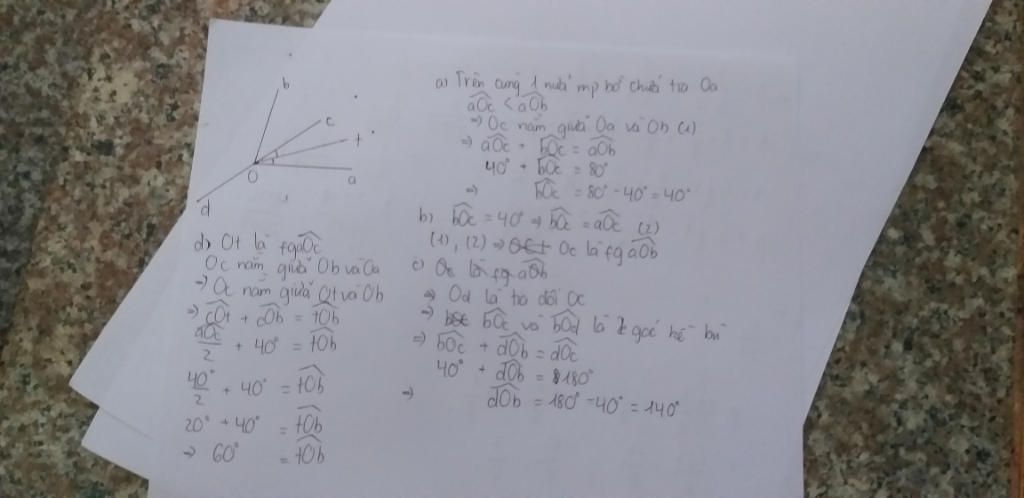 b
c
t
O
a
d
a) Trên cùng 1 nửa mp bờ chứa tia Oa
aOc < aOb
⇒ Oc nằm giữa Oa và Ob (1)
⇒ aOc + bOc = aOb
40° + bOc = 80°
⇒ bOc = 80° - 40° = 40°
b) bOc = 40° ⇒ bOc = aOc (2)
(1), (2) ⇒ Oc là fg aOb
c) Oc là fg aOb
⇒ Od là tia đối Oc
⇒ bOc và bOd là 2 góc kề bù
⇒ bOc + dOb = dOc
40° + dOb = 180°
⇒ dOb = 180° - 40° = 140°
d) Ot là fg aOc
Oc nằm giữa Ob và Oa
⇒ Oc nằm giữa Ot và Ob
⇒ cOt + cOb = tOb
aOc/2 + 40° = tOb
40°/2 + 40° = tOb
20° + 40° = tOb
⇒ 60° = tOb